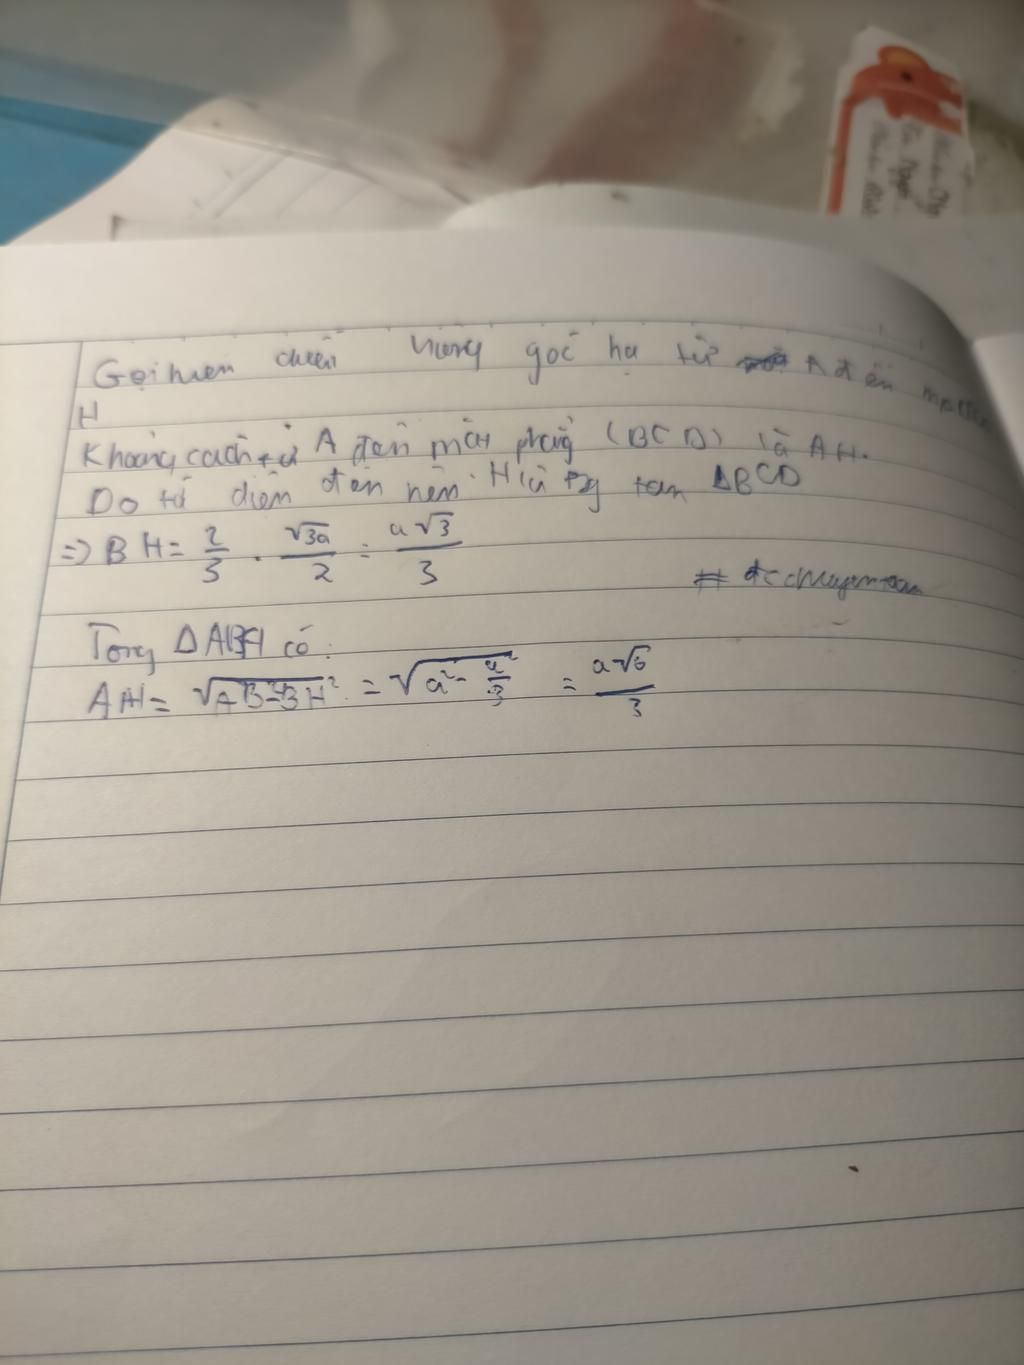 Gọi hình chiếu vuông góc hạ từ A đến
H
Khoảng cách từ A đến mặt phẳng (BCD) là AH.
Do tứ diện đều nên H là tâm ΔBCD
=> BH = 2/3 . √3a/2 = a√3/3
Trong ΔABH có:
AH = √AB²-BH² = √a² - a²/3 = a√6/3